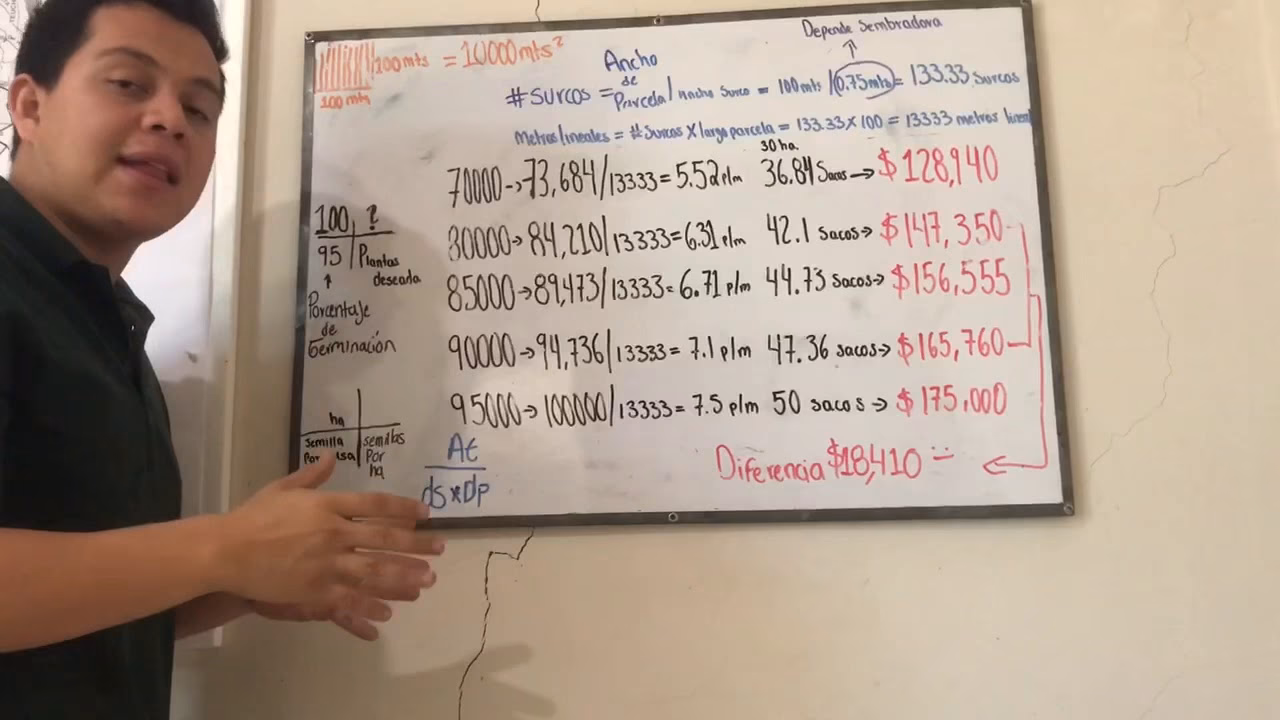 Depende Sembradora
100mts = 10000mts²
100 mts
Ancho
de
#Surcos = Parcela / Ancho Surco = 100mts / 0.75mts = 133.33 Surcos
Metros lineales = # Surcos X largo parcela = 133.33 X 100 = 13333 metros lineal
30 ha.
70000 → 73,684/13333 = 5.52 plm 36.84 Sacos → $128,940
80000 → 84,210/13333 = 6.31 plm 42.1 Sacos → $147,350
85000 → 89,473/13333 = 6.71 plm 44.73 sacos → $156,555
90000 → 94,736/13333 = 7.1 plm 47.36 sacos → $165,760
95000 → 100000/13333 = 7.5 plm 50 sacos → $175,000
Diferencia $18,410
100 ?
95 Plantas
deseada
Porcentaje
de
Germinación
ha
Semilla semillas
Por Por
ha
At
ds x Dp